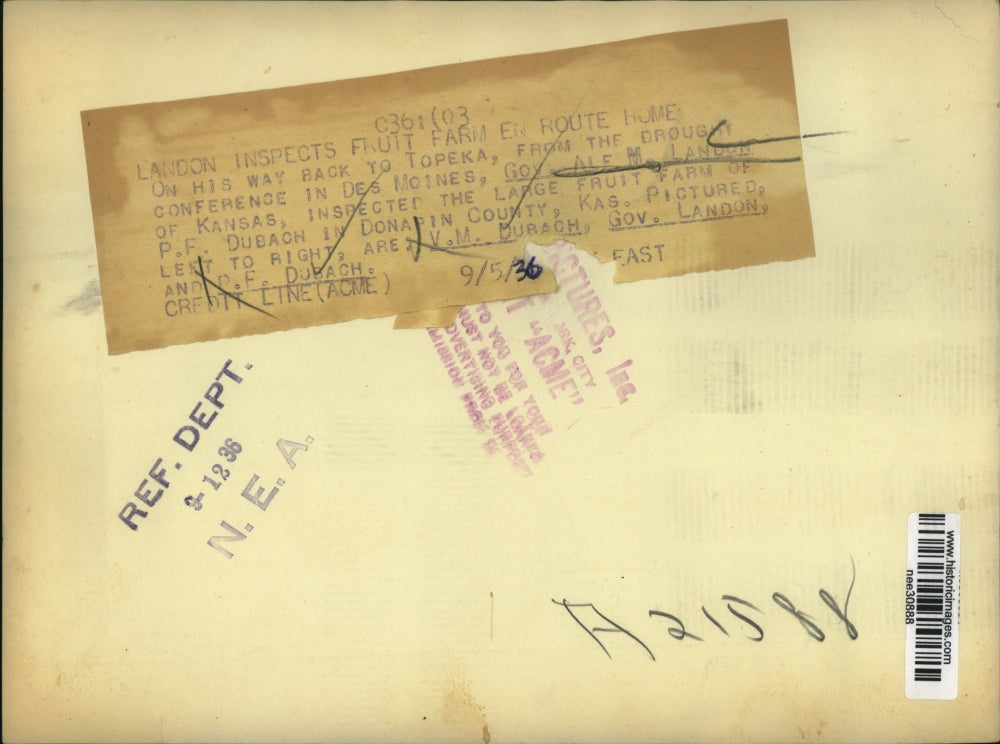 C361(03
LANDON INSPECTS FRUIT FARM EN ROUTE HOME
ON HIS WAY BACK TO TOPEKA, FROM THE DROUGHT
CONFERENCE IN DES MOINES, GOV. ALF M. LANDON
OF KANSAS, INSPECTED THE LARGE FRUIT FARM OF
P.F. DUBACH IN DONAPIN COUNTY, KAS. PICTURED,
LEFT TO RIGHT, ARE: V.M. DUBACH, GOV. LANDON,
AND P.F. DUBACH.
CREDIT LINE (ACME) 9/5/36 EAST
CTURES, Inc.
CITY
"ACME"
TO YOU FOR YOUR
MUST NOT BE LOANED
ADVERTISING PURPOSES
REF. DEPT.
9-12 36
N. E. A.
A 21588
www.historicimages.com
nee30888